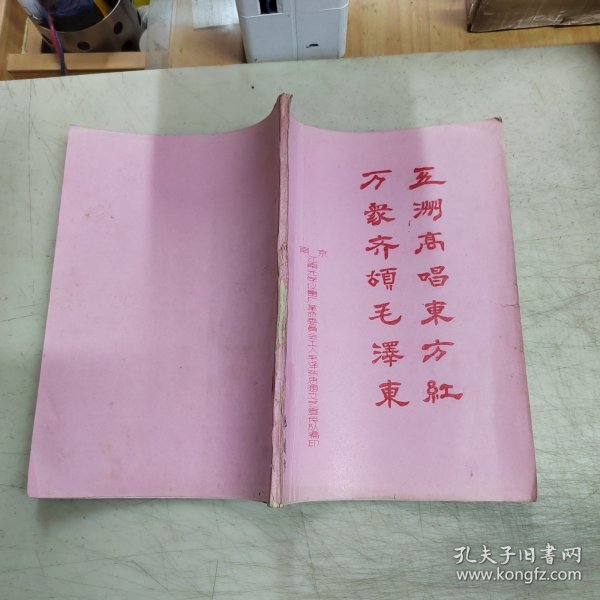 五洲高唱東方紅
万衆齐頌毛澤東
南京
孔夫子旧書网
www.kongfz.com